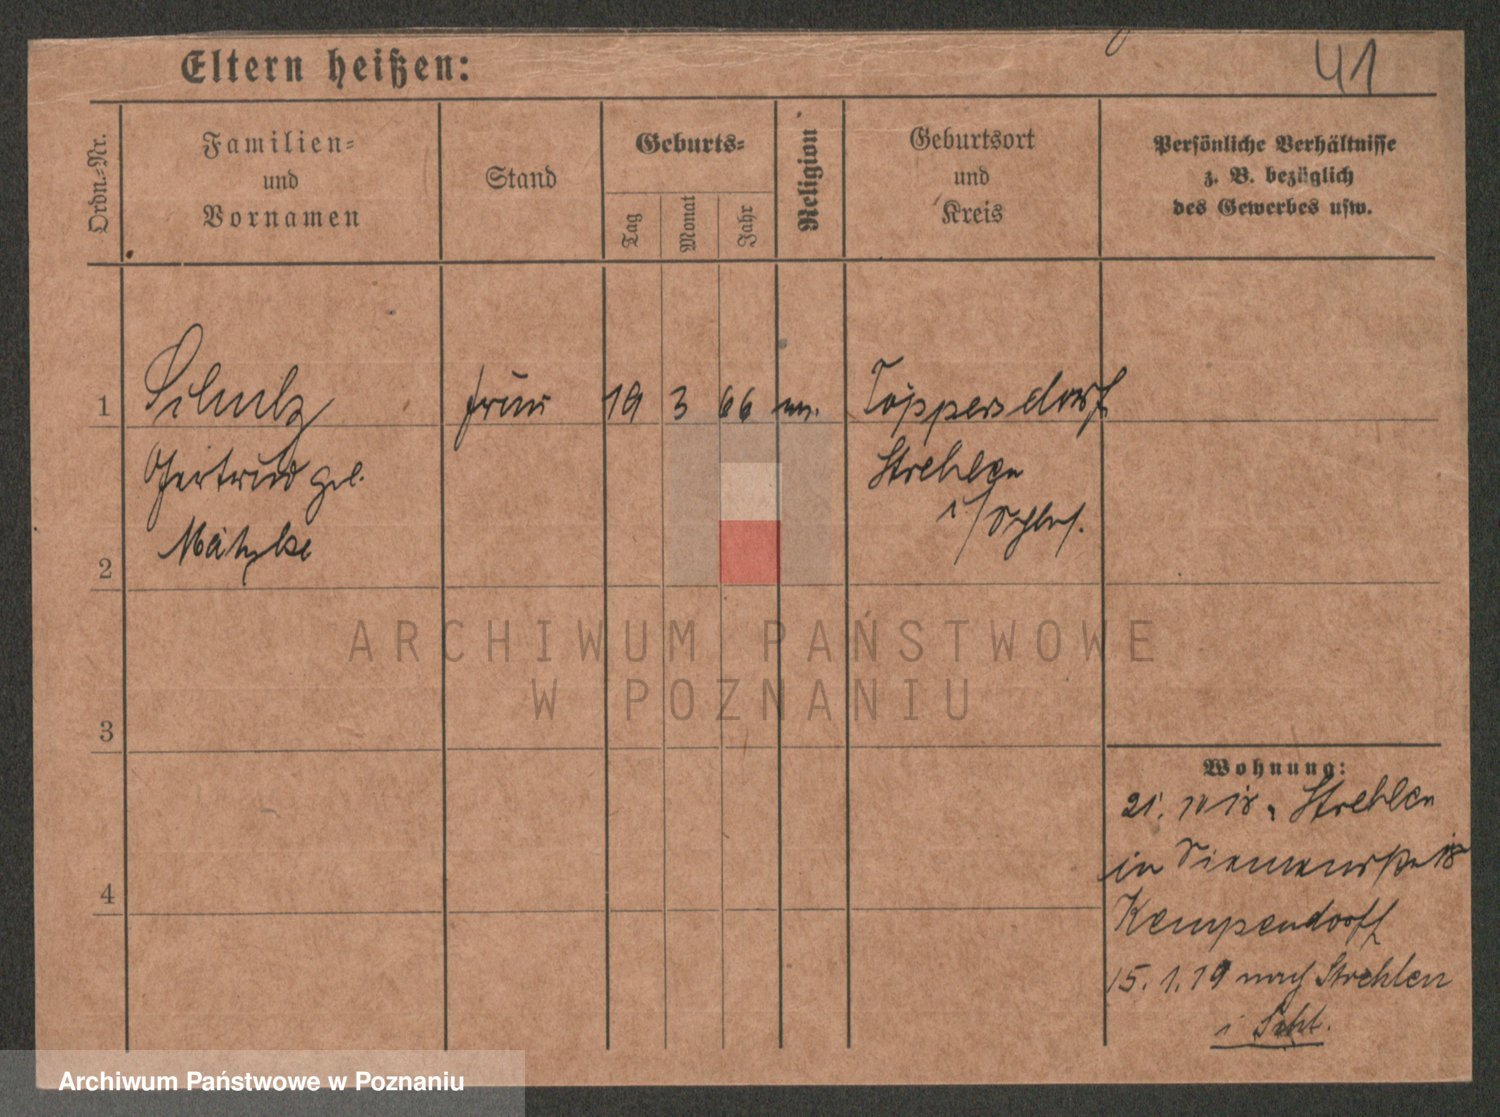 Eltern heißen:
41
Ordn.-Nr.
Familien-
und
Vornamen
Stand
Geburts-
Tag
Monat
Jahr
Religion
Geburtsort
und
Kreis
Persönliche Verhältnisse
z. B. bezüglich
des Gewerbes usw.
1 Schulz 19 3 66 Töppersdorf
Gertrud geb. Strehlen
i/Schles.
Mätzke
2
3
4
Wohnung:
21. IV 18. Strehlen
in Siemensstr. 18
Kempendorff
15.1.19 nach Strehlen
i Schl.
ARCHIWUM PAŃSTWOWE
W POZNANIU
Archiwum Państwowe w Poznaniu